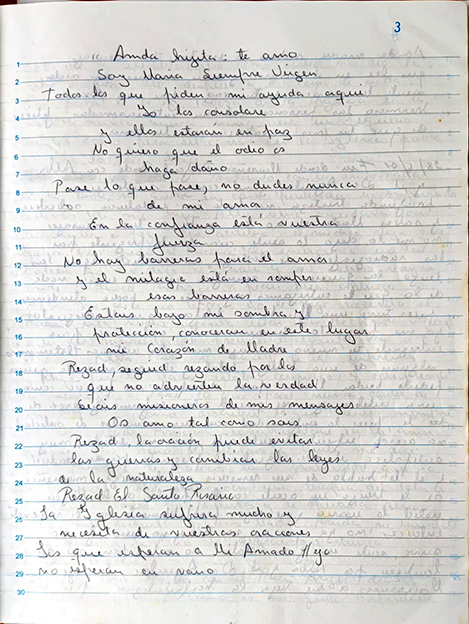 3
" Amda hijita: te amo
Soy María Siempre Virgen
Todos los que piden mi ayuda aqui
Yo los consolaré
y ellos estaran en paz
No quiero que el odio os
haga daño
Pase lo que pase, no dudes nunca
de mi amor
En la confianza está vuestra
fuerza
No hay barreras para el amor
y el milagro está en romper
esas barreras
Estais bajo mi sombra y
protección, conoceran en este lugar
mi Corazón de Madre
Rezad, seguid rezando por los
que no advierten la verdad
Seais misioneros de mis mensajes
Os amo tal como sois
Rezad, la oración puede evitar
las guerras y cambiar las leyes
de la naturaleza
Rezad El Santo Rosario
La Iglesia sufrirá mucho y
necesita de vuestras oraciones
Los que esperan a Mi Amado Hijo
no esperan en vano
1
2
3
4
5
6
7
8
9
10
11
12
13
14
15
16
17
18
19
20
21
22
23
24
25
26
27
28
29
30